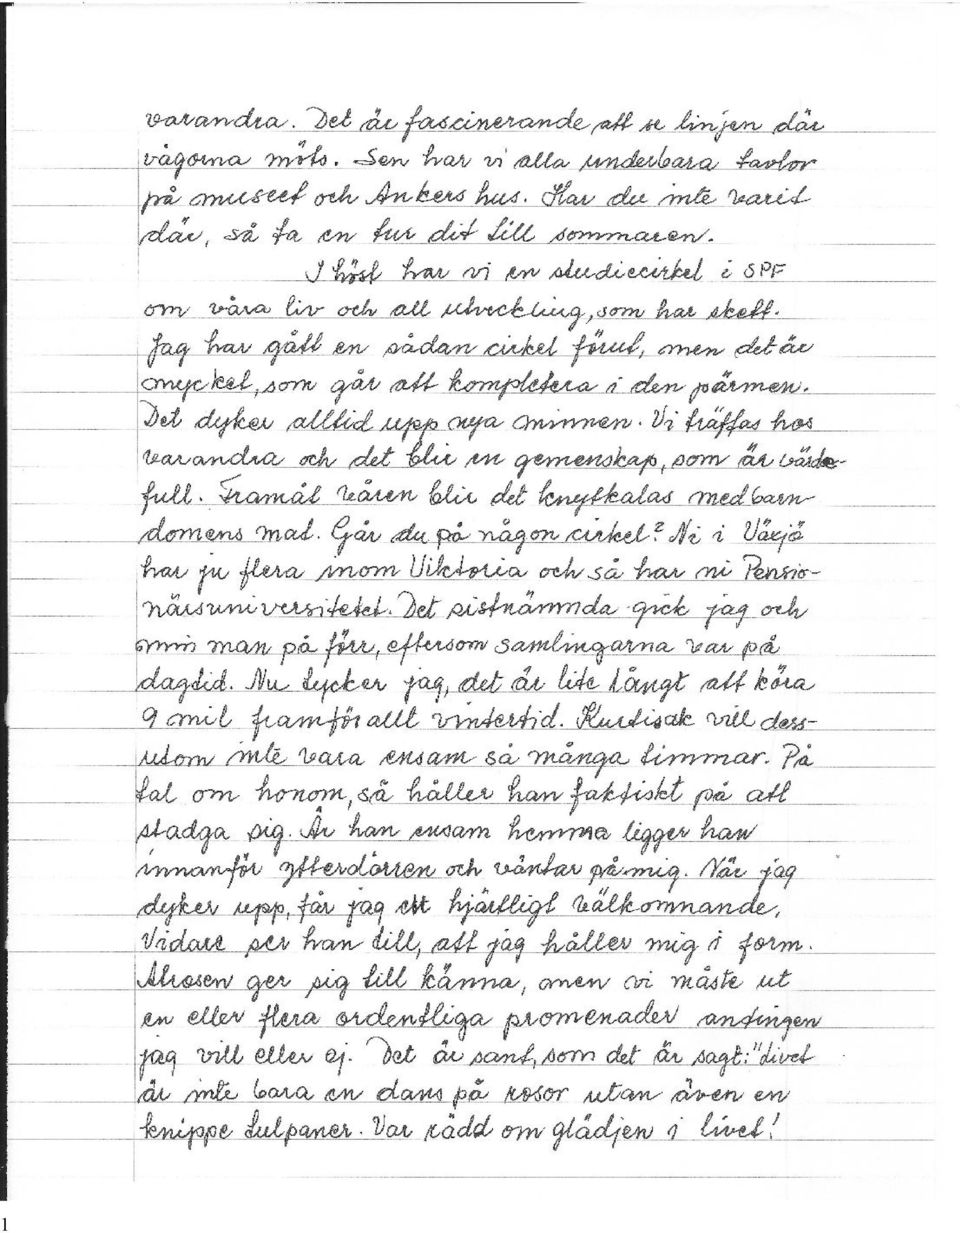 varandra. Det är fascinerande att se linjen där
vågorna möts. Sen har vi alla underbara tavlor
på museet och Ankers hus. Har du inte varit
där, så ta en tur dit till sommaren.
I höst har vi en studiecirkel i SPF
om våra liv och all utveckling, som har skett.
Jag har gått en sådan cirkel förut, men det är
mycket, som går att komplettera i den pärmen.
Det dyker alltid upp nya minnen. Vi träffas hos
varandra och det blir en gemenskap, som är värde-
full. Framåt våren blir det knytkalas med barn-
domens mat. Går du på någon cirkel? Ni i Växjö
har ju flera inom Viktoria och så har ni Pensio-
närsuniversitetet. Det sistnämnda gick jag och
min man på förr, eftersom samlingarna var på
dagtid. Nu tycker jag, det är lite långt att köra
9 mil framför allt vintertid. Kurtisak vill dess-
utom inte vara ensam så många timmar. På
tal om honom, så håller han faktiskt på att
stadga sig. Är han ensam hemma ligger han
innanför ytterdörren och väntar på mig. När jag
dyker upp, får jag ett hjärtligt välkomnande.
Vidare ser han till, att jag håller mig i form.
Atrosen ger sig till känna, men vi måste ut
en eller flera ordentliga promenader antingen
jag vill eller ej. Det är sant, som det är sagt: "Livet
är inte bara en dans på rosor utan även en
knippe tulpaner. Var rädd om glädjen i livet!
1